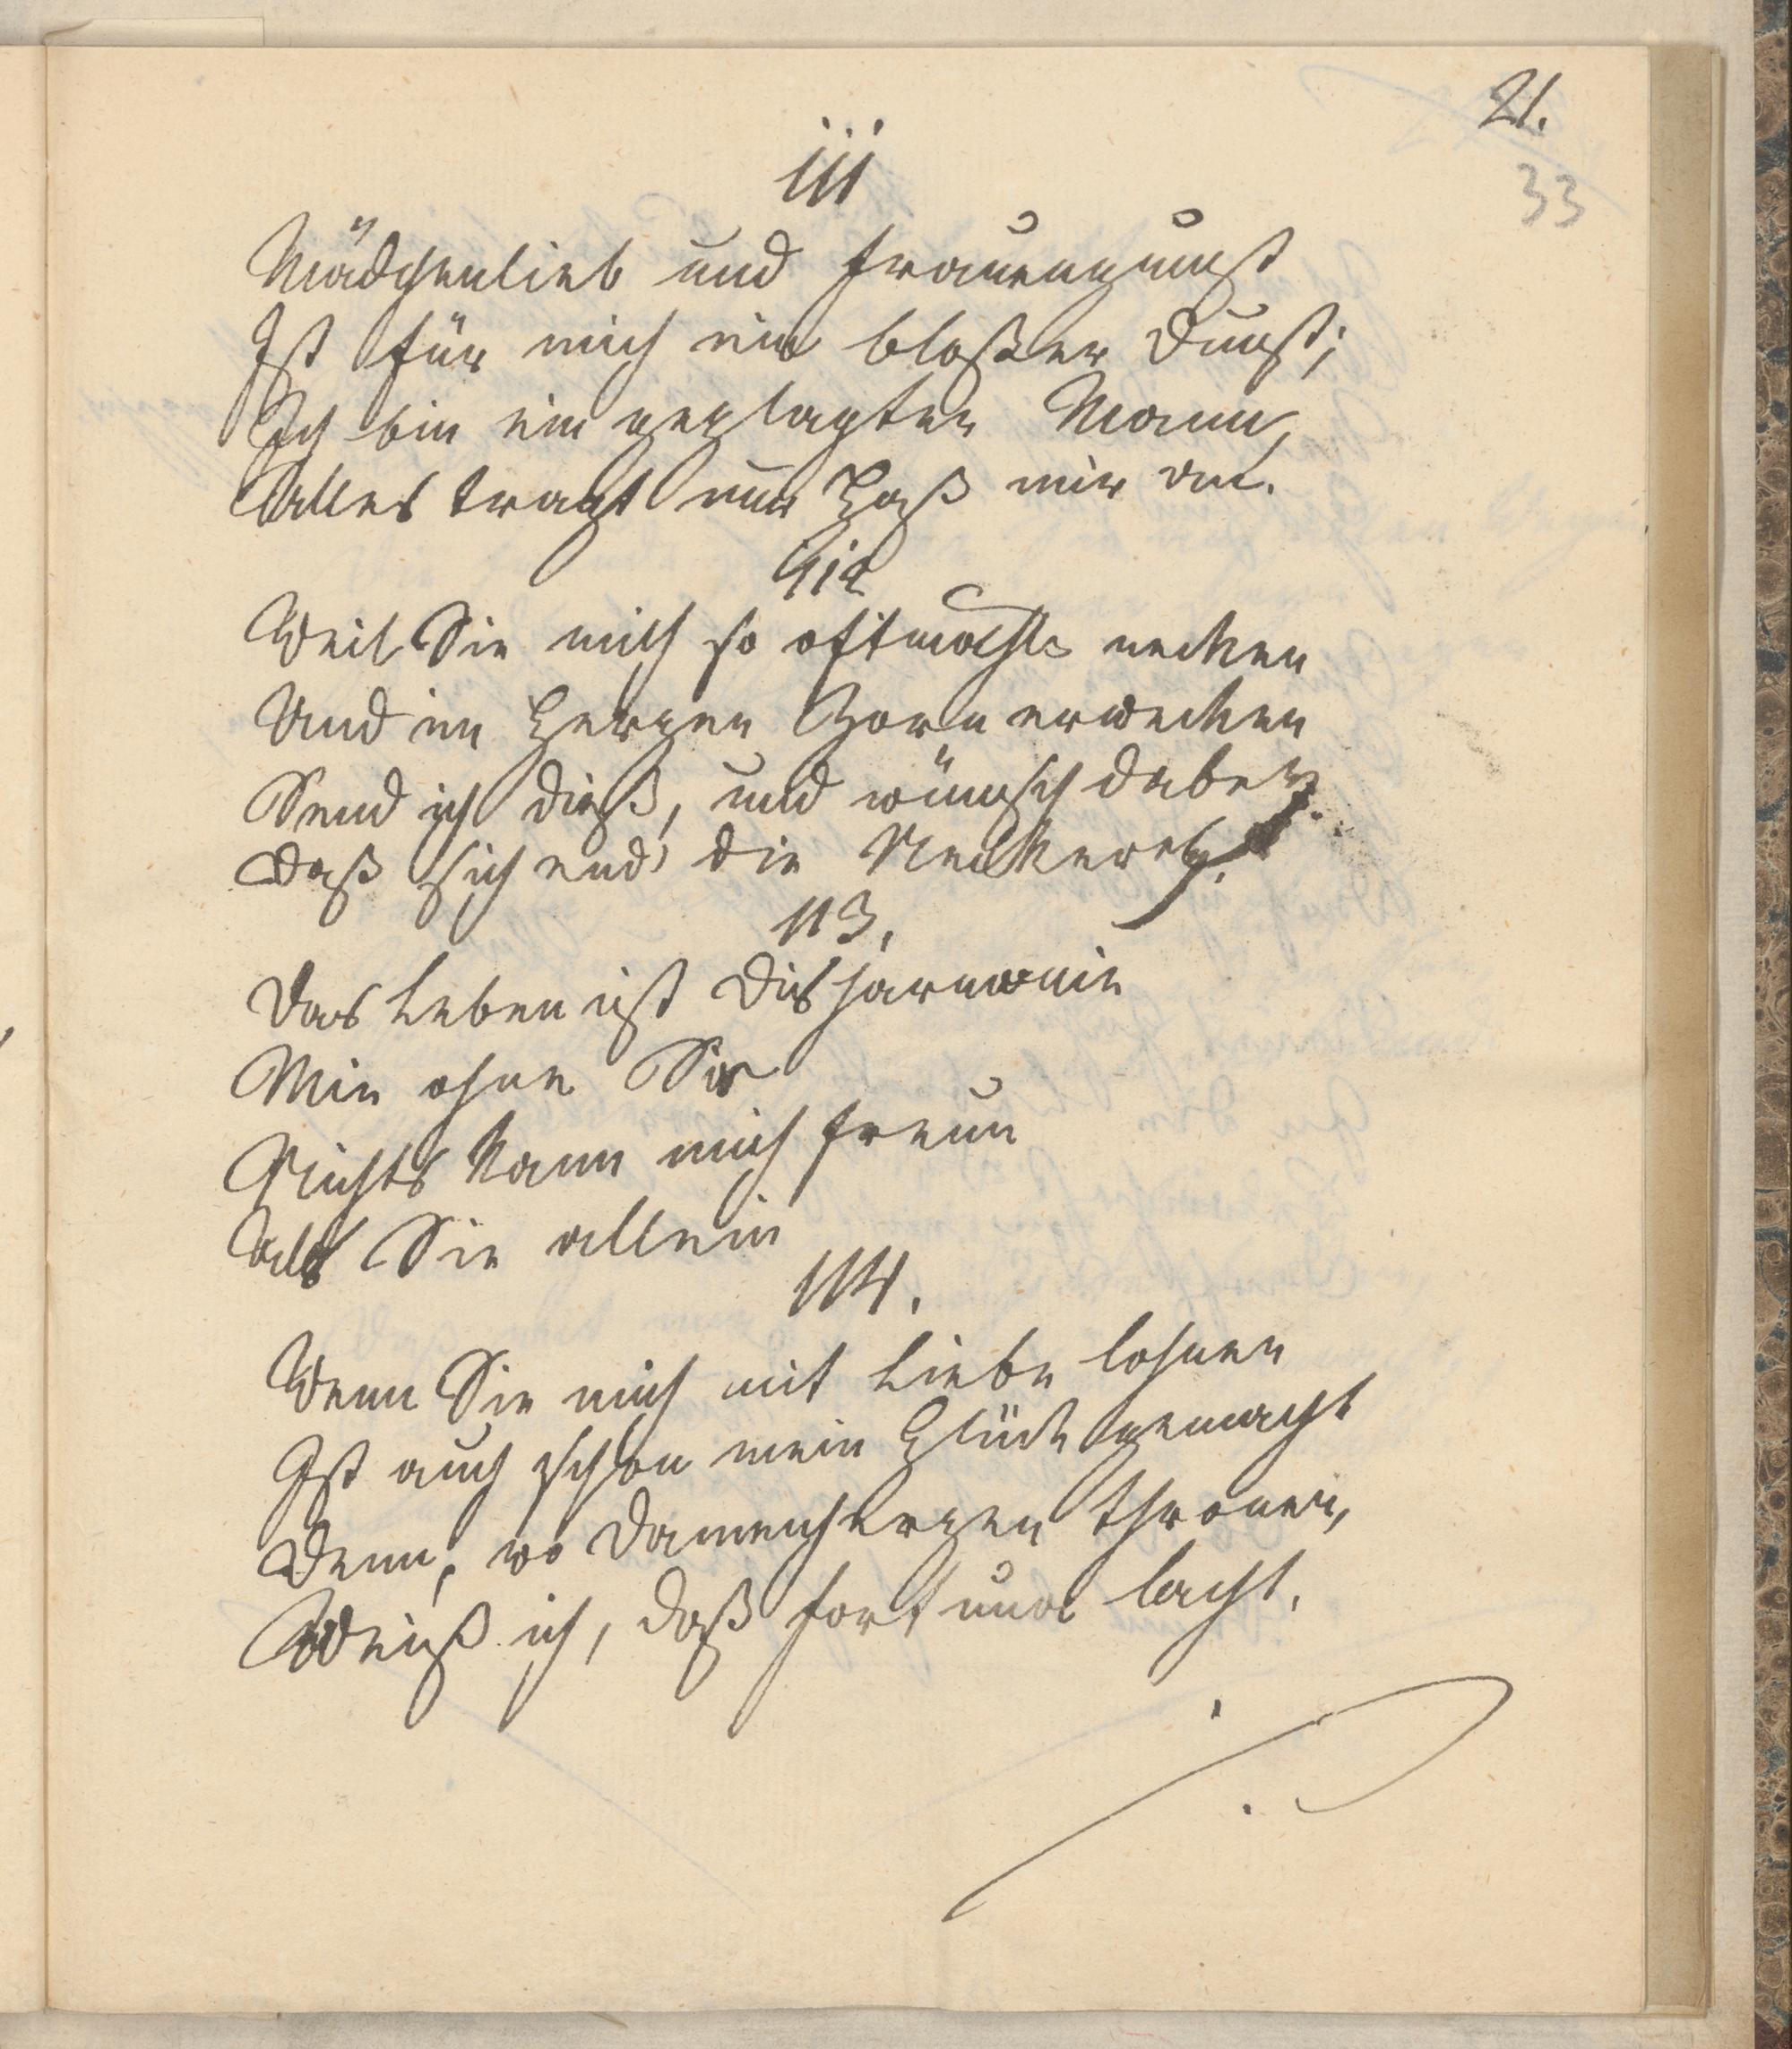 21.
33
111
Mädchenlieb und Frauengunst
Ist für mich ein bloßer Dunst;
Ich bin ein geplagter Mann,
Alles tragt nur Haß mir an.
112
Weil Sie mich so oftmahls necken
Und im Herzen Zorn erwecken
Send ich dieß, und wünsch dabey
Daß sich end' die Neckerey.
113.
Das Leben ist Disharmonie
Mir ohne Sie
Nichts kann mich freun
Als Sie allein
114.
Wenn Sie mich mit Liebe lohnen
Ist auch schon mein Glück gemacht
Denn, wo Damenherzen thronen,
Weiß ich, daß Fortuna lacht.